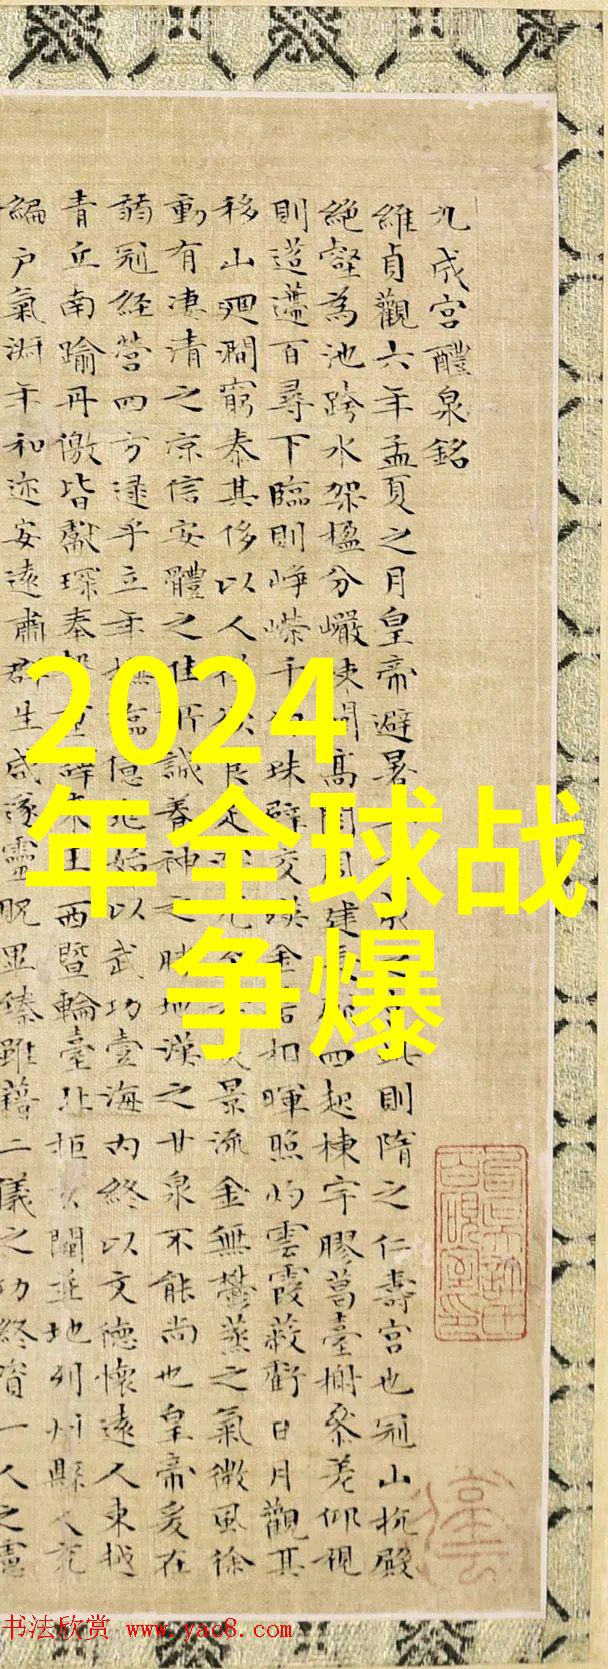 九成宮醴泉銘
維貞觀六年孟夏之月皇帝避暑則隋之仁壽宮也冠山抗殿
絕壑為池跨水架楹分巖竦闕高閣周建四起棟宇膠葛臺榭參差仰視
則迢遰百尋下臨則崢嶸千仞珠壁交映金碧相暉照灼雲霞蔽虧日月觀其
移山迴澗窮泰其侈以人從欲良足景流金無鬱蒸之氣微風徐
動有淒清之涼信安體之佳所誠養神之勝地漢之甘泉不能尚也皇帝爰在
弱冠經營四方逮乎立年撫臨億兆始以武功壹海內終以文德懷遠人東越
青丘南踰丹儌皆獻琛奉贄重譯來王西暨輪臺北拒玄闕並地列州縣人充
編戶氣淑年和迩安遠肅群生咸遂靈貺畢臻雖藉二儀之功終資一人之慮
2024
年全球战
争爆
书法欣赏 www.yac8.com